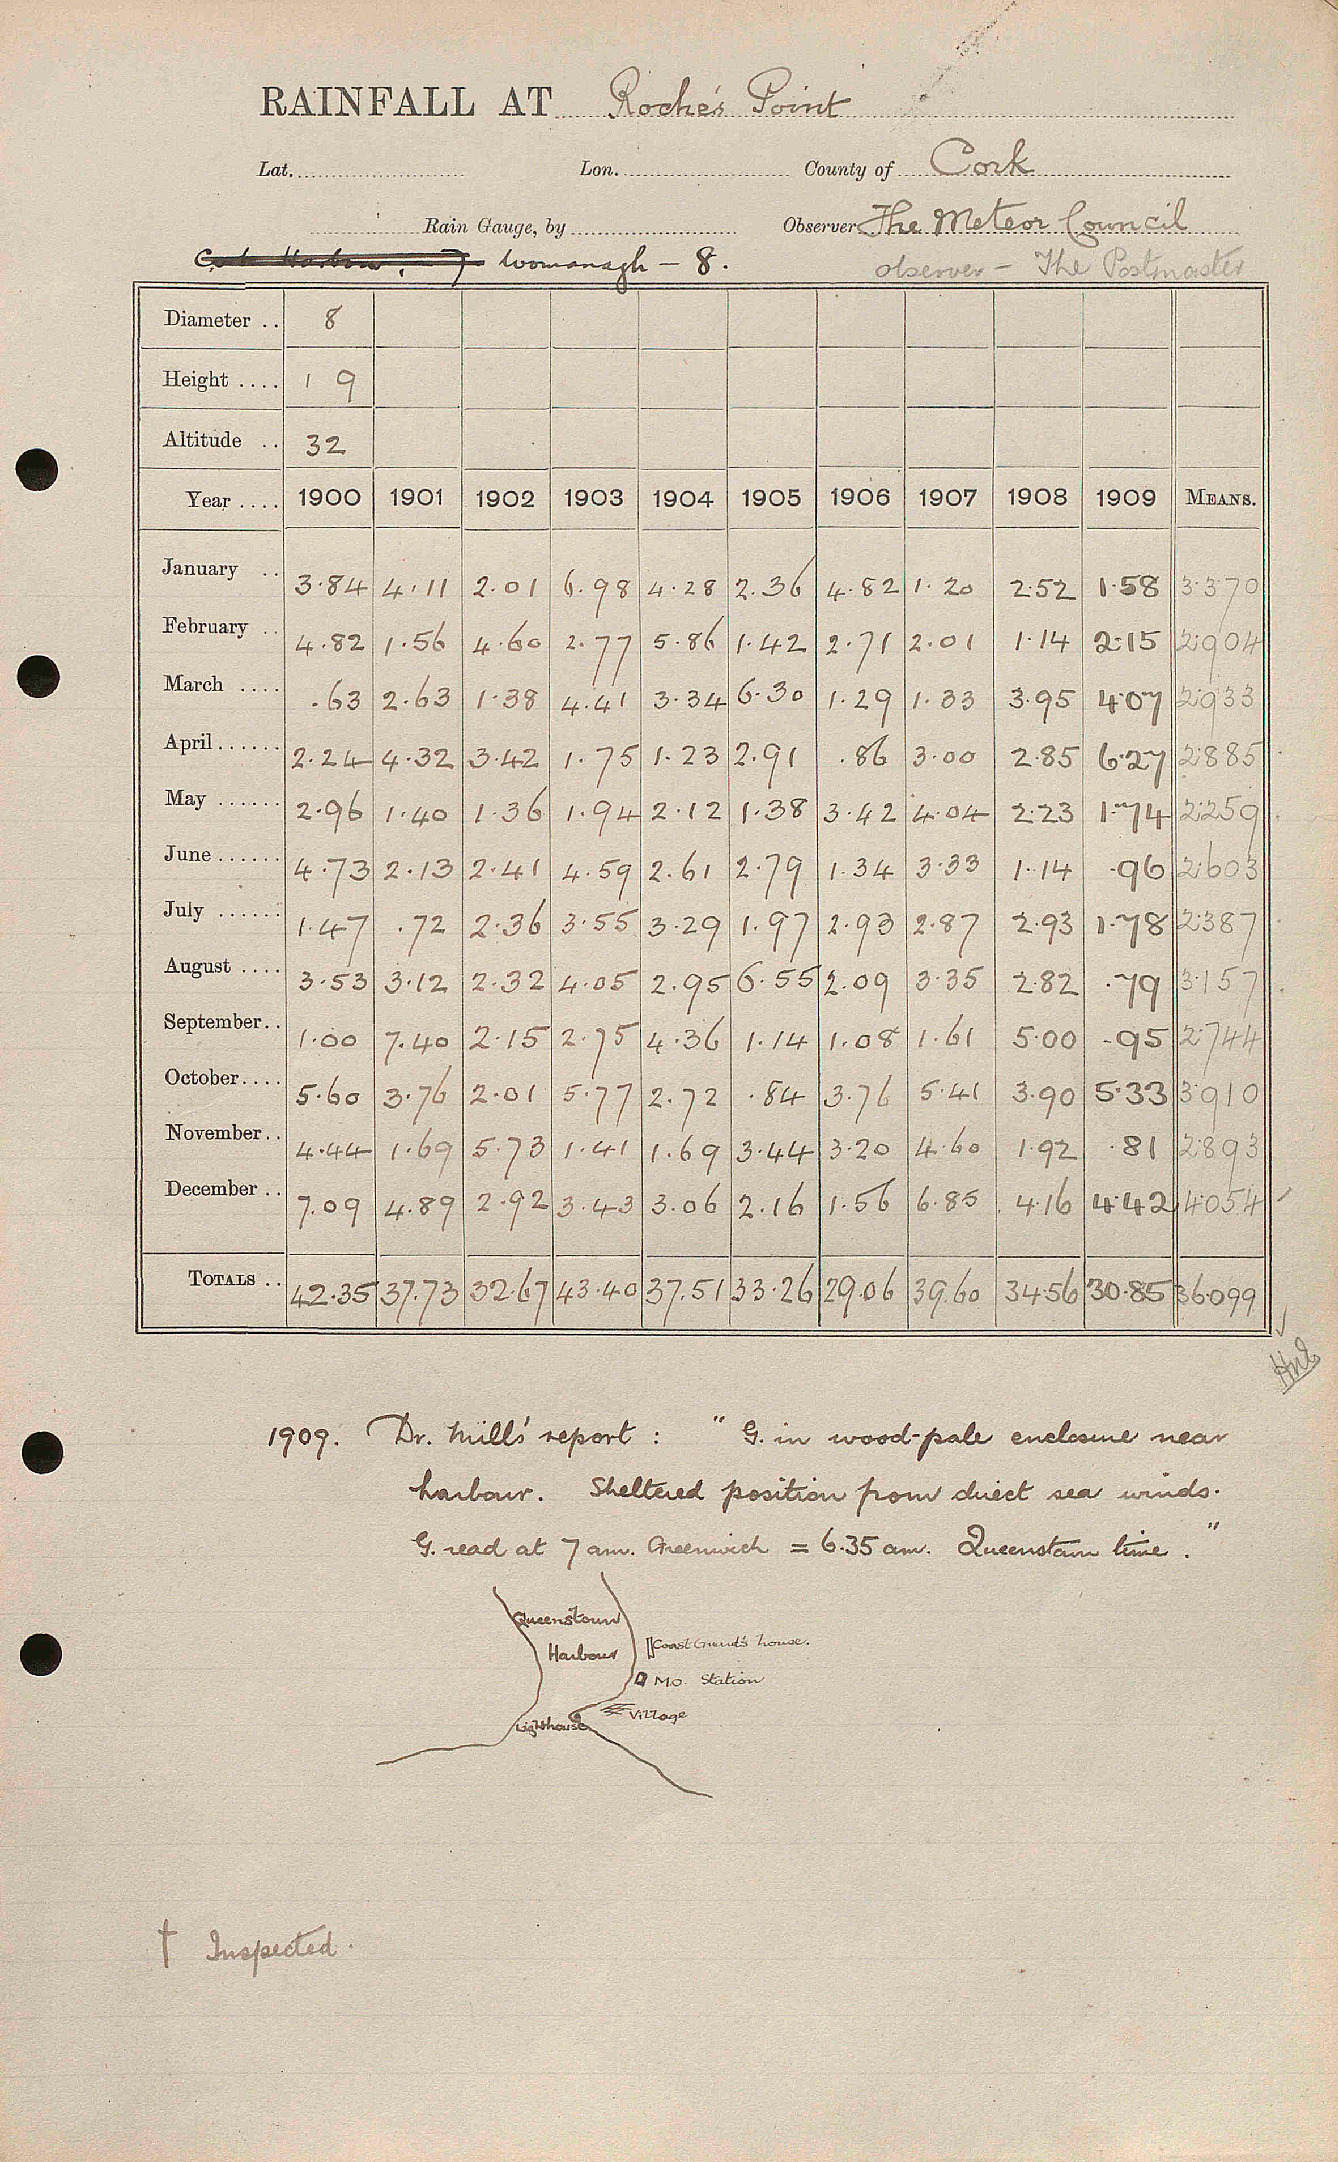 RAINFALL AT Roche's Point
Lat. Lon. County of Cork
Rain Gauge, by Observer The Meteor Council
Cork Harbour. 7 Womanagh - 8. observer - The Postmaster
Diameter .. 8
Height .... 1 9
Altitude .. 32
Year .... 1900 1901 1902 1903 1904 1905 1906 1907 1908 1909 MEANS.
January .. 3.84 4.11 2.01 6.98 4.28 2.36 4.82 1.20 2.52 1.58 3.370
February .. 4.82 1.56 4.60 2.77 5.86 1.42 2.71 2.01 1.14 2.15 2.904
March .... .63 2.63 1.38 4.41 3.34 6.30 1.29 1.33 3.95 4.07 2.933
April...... 2.24 4.32 3.42 1.75 1.23 2.91 .86 3.00 2.85 6.27 2.885
May ...... 2.96 1.40 1.36 1.94 2.12 1.38 3.42 4.04 2.23 1.74 2.259
June ...... 4.73 2.13 2.41 4.59 2.61 2.79 1.34 3.33 1.14 .96 2.603
July ...... 1.47 .72 2.36 3.55 3.29 1.97 2.93 2.87 2.93 1.78 2.387
August .... 3.53 3.12 2.32 4.05 2.95 6.55 2.09 3.35 2.82 .79 3.157
September.. 1.00 7.40 2.15 2.75 4.36 1.14 1.08 1.61 5.00 .95 2.744
October.... 5.60 3.76 2.01 5.77 2.72 .84 3.76 5.41 3.90 5.33 3.910
November.. 4.44 1.69 5.73 1.41 1.69 3.44 3.20 4.60 1.92 .81 2.893
December .. 7.09 4.89 2.92 3.43 3.06 2.16 1.56 6.85 4.16 4.42 4.054
TOTALS .. 42.35 37.73 32.67 43.40 37.51 33.26 29.06 39.60 34.56 30.85 36.099
1909. Dr. Mill's report : " G. in wood-pale enclosure near
harbour. Sheltered position from direct sea winds.
G. read at 7 am. Greenwich = 6.35 am. Queenstown time . "
Queenstown
Harbour
Coast Guard's house.
M.O. Station
Village
Lighthouse
† Inspected.